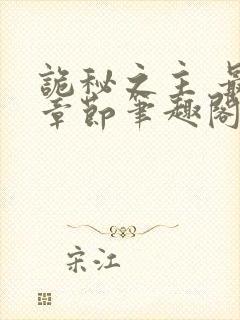 詭秘之主 最
章節筆趣閣
宋江